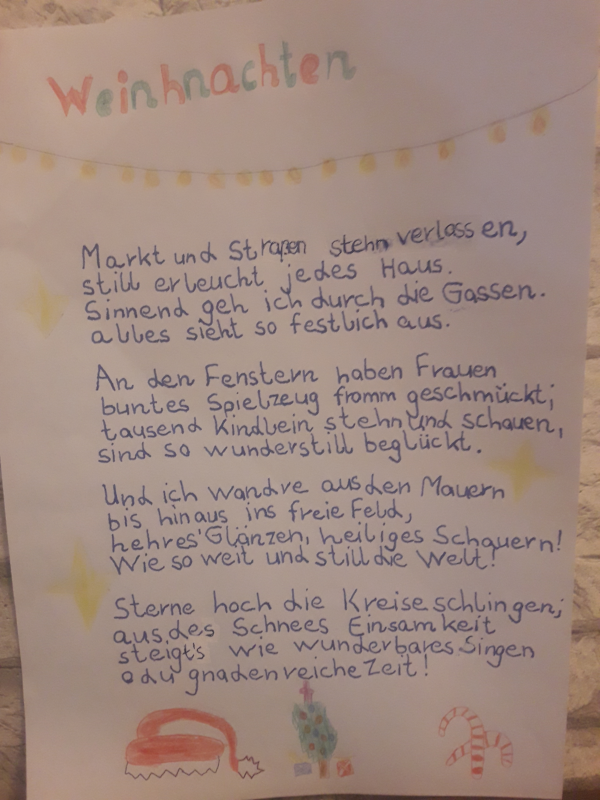 Weinhnachten
Markt und Straßen stehn verlassen,
still erleucht jedes Haus.
Sinnend geh ich durch die Gassen.
alles sieht so festlich aus.
An den Fenstern haben Frauen
buntes Spielzeug fromm geschmückt;
tausend Kindlein stehn und schauen,
sind so wunderstill beglückt.
Und ich wandre aus den Mauern
bis hinaus ins freie Feld,
hehres Glänzen, heiliges Schauern!
Wie so weit und still die Welt!
Sterne hoch die Kreise schlingen;
aus des Schnees Einsamkeit
steigt's wie wunderbares Singen
o du gnadenreiche Zeit!